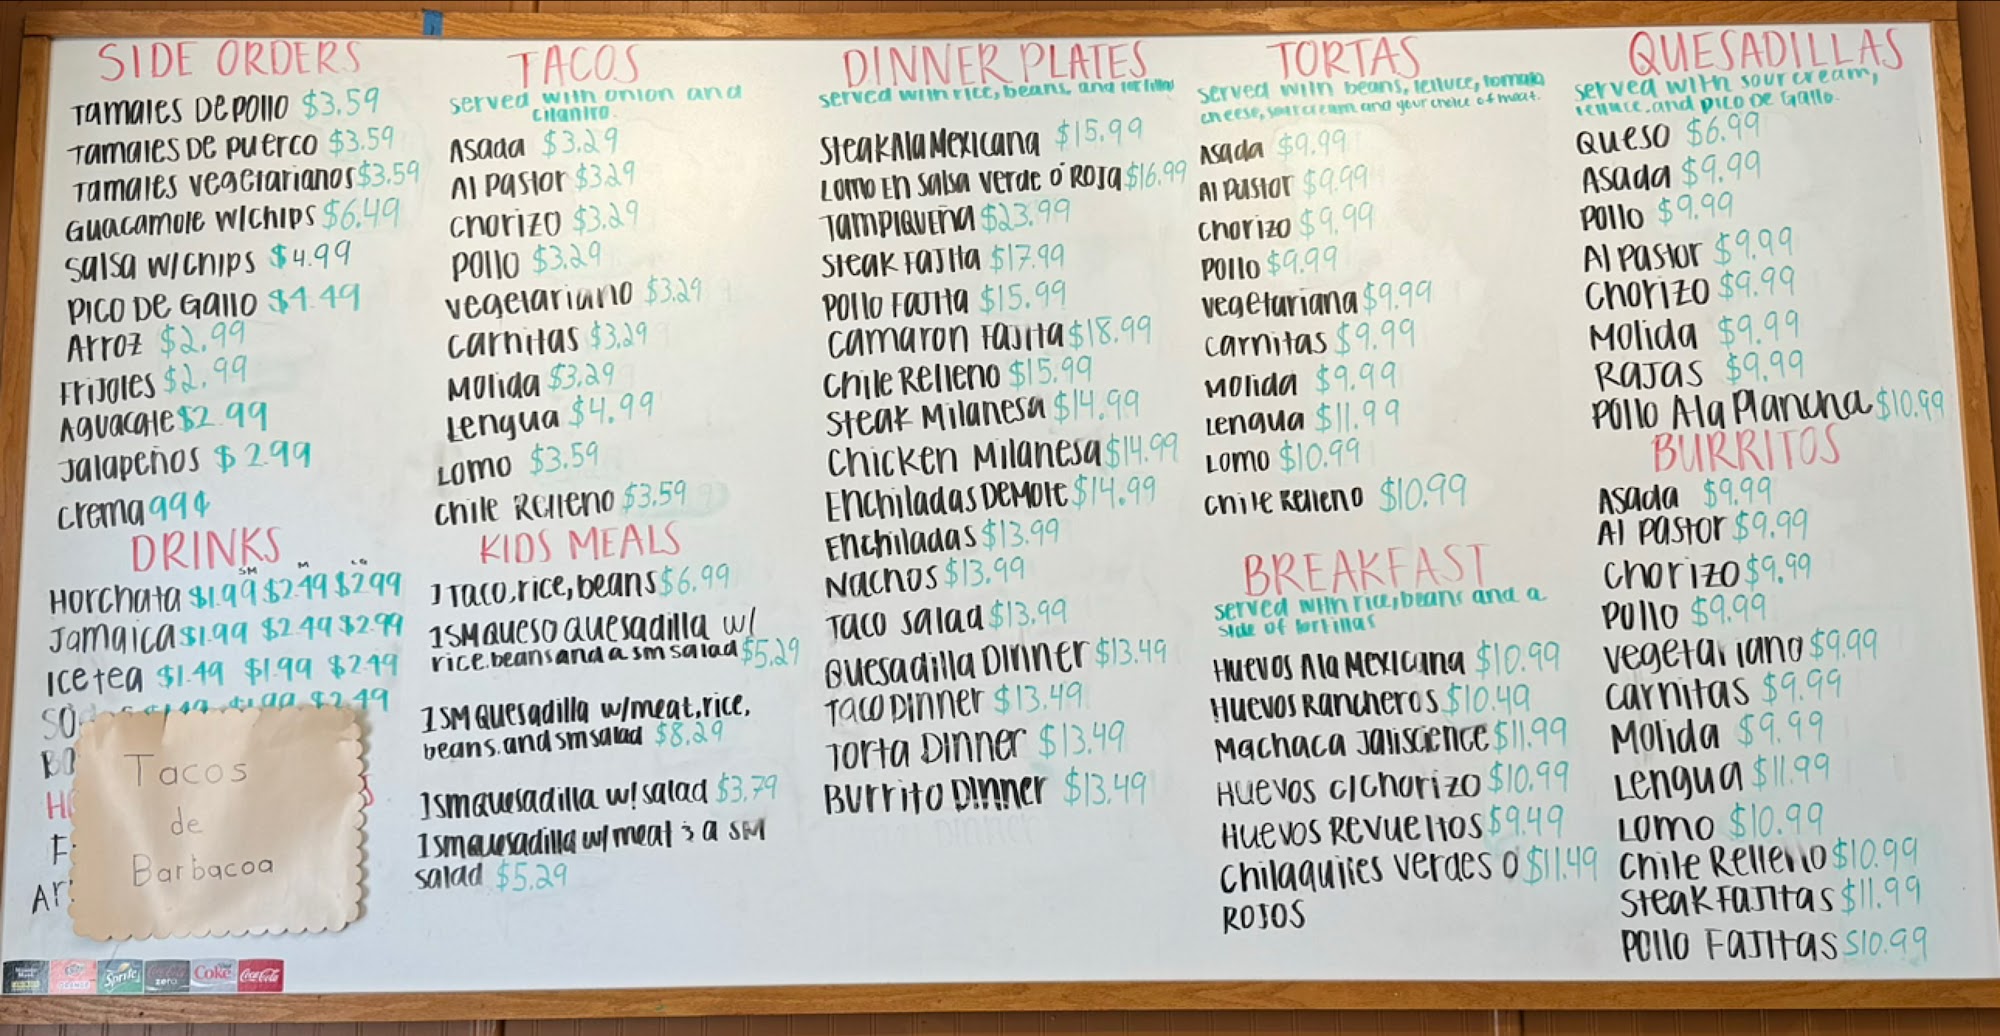 SIDE ORDERS
Tamales De Pollo $3.59
Tamales De Puerco $3.59
Tamales Vegetarianos $3.59
Guacamole w/chips $6.49
Salsa w/chips $4.99
Pico De Gallo $4.49
Arroz $2.99
Frijoles $2.99
Aguacate $2.99
Jalapeños $2.99
Crema 99¢
DRINKS
SM M LG
Horchata $1.99 $2.49 $2.99
Jamaica $1.99 $2.49 $2.99
Ice tea $1.49 $1.99 $2.49
$1.49 $1.99 $2.49
Tacos
de
Barbacoa
Sprite
zero
Coke
Coca-Cola
TACOS
served with onion and
cilantro.
Asada $3.29
Al Pastor $3.29
Chorizo $3.29
Pollo $3.29
Vegetariano $3.29
Carnitas $3.29
Molida $3.29
Lengua $4.99
Lomo $3.59
Chile Relleno $3.59
KIDS MEALS
1 Taco, rice, beans $6.99
1 SM Queso Quesadilla w/
rice, beans and a sm salad $5.29
1 SM Quesadilla w/meat, rice,
beans, and sm salad $8.29
1 sm quesadilla w/ salad $3.79
1 sm quesadilla w/ meat & a SM
salad $5.29
DINNER PLATES
served with rice, beans, and tortillas
Steak Ala Mexicana $15.99
Lomo En Salsa Verde Ó Roja $16.99
Tampiqueña $23.99
Steak Fajita $17.99
Pollo Fajita $15.99
Camaron Fajita $18.99
Chile Relleno $15.99
Steak Milanesa $14.99
Chicken Milanesa $14.99
Enchiladas De Mole $14.99
Enchiladas $13.99
Nachos $13.99
Taco Salad $13.99
Quesadilla Dinner $13.49
Taco Dinner $13.49
Torta Dinner $13.49
Burrito Dinner $13.49
TORTAS
served with beans, lettuce, tomato
cheese, sour cream and your choice of meat.
Asada $9.99
Al Pastor $9.99
Chorizo $9.99
Pollo $9.99
Vegetariana $9.99
Carnitas $9.99
Molida $9.99
Lengua $11.99
Lomo $10.99
Chile Relleno $10.99
BREAKFAST
served with rice, beans and a
side of tortillas
Huevos Ala Mexicana $10.99
Huevos Rancheros $10.49
Machaca Jaliscience $11.99
Huevos c/Chorizo $10.99
Huevos Revueltos $9.49
Chilaquiles Verdes O $11.49
Rojos
QUESADILLAS
served with sour cream,
lettuce, and Pico De Gallo.
Queso $6.99
Asada $9.99
Pollo $9.99
Al Pastor $9.99
Chorizo $9.99
Molida $9.99
Rajas $9.99
Pollo Ala Plancha $10.99
BURRITOS
Asada $9.99
Al Pastor $9.99
Chorizo $9.99
Pollo $9.99
Vegetariano $9.99
Carnitas $9.99
Molida $9.99
Lengua $11.99
Lomo $10.99
Chile Relleno $10.99
Steak Fajitas $11.99
Pollo Fajitas $10.99